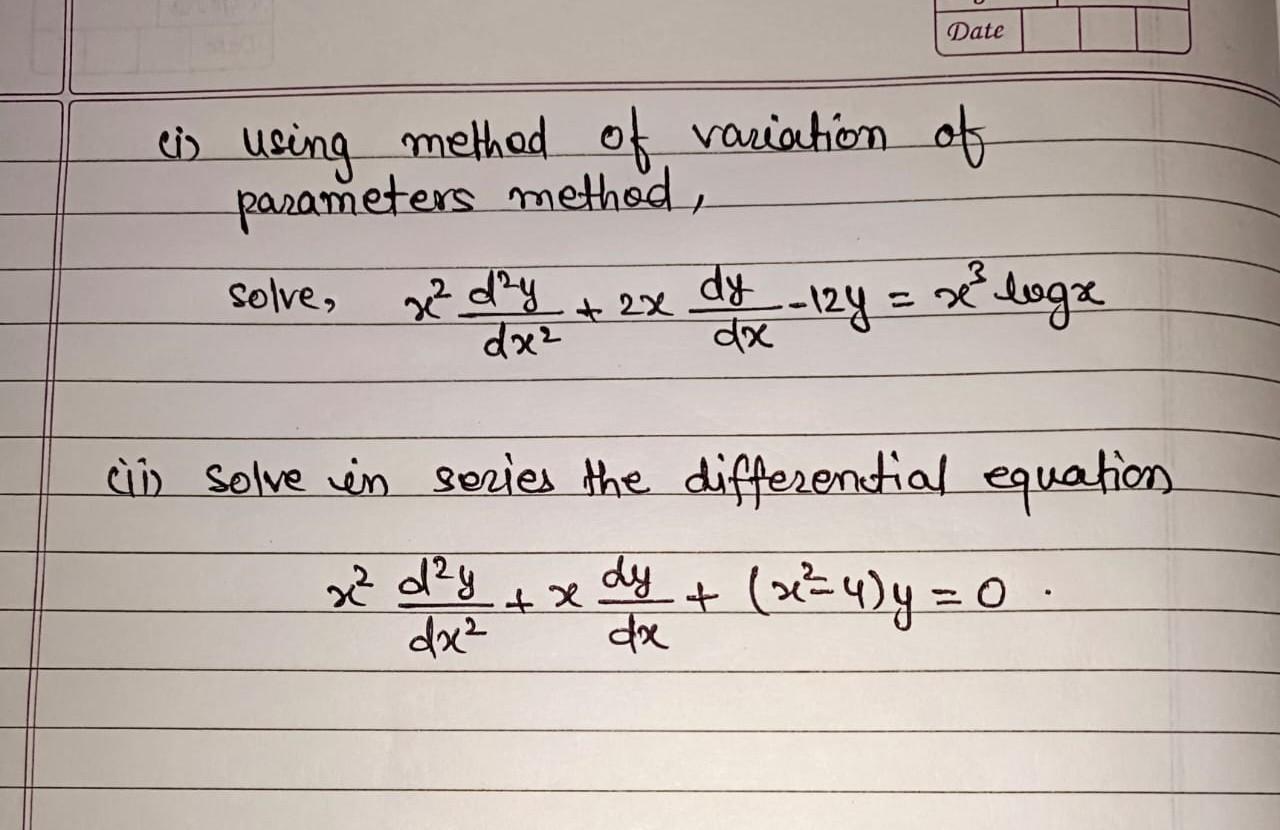 Date
(i) using method of variation of
parameters method,
solve, x² d²y/dx² + 2x dy/dx - 12y = x³ logx
(ii) solve in series the differential equation
x² d²y/dx² + x dy/dx + (x²-4)y = 0 .